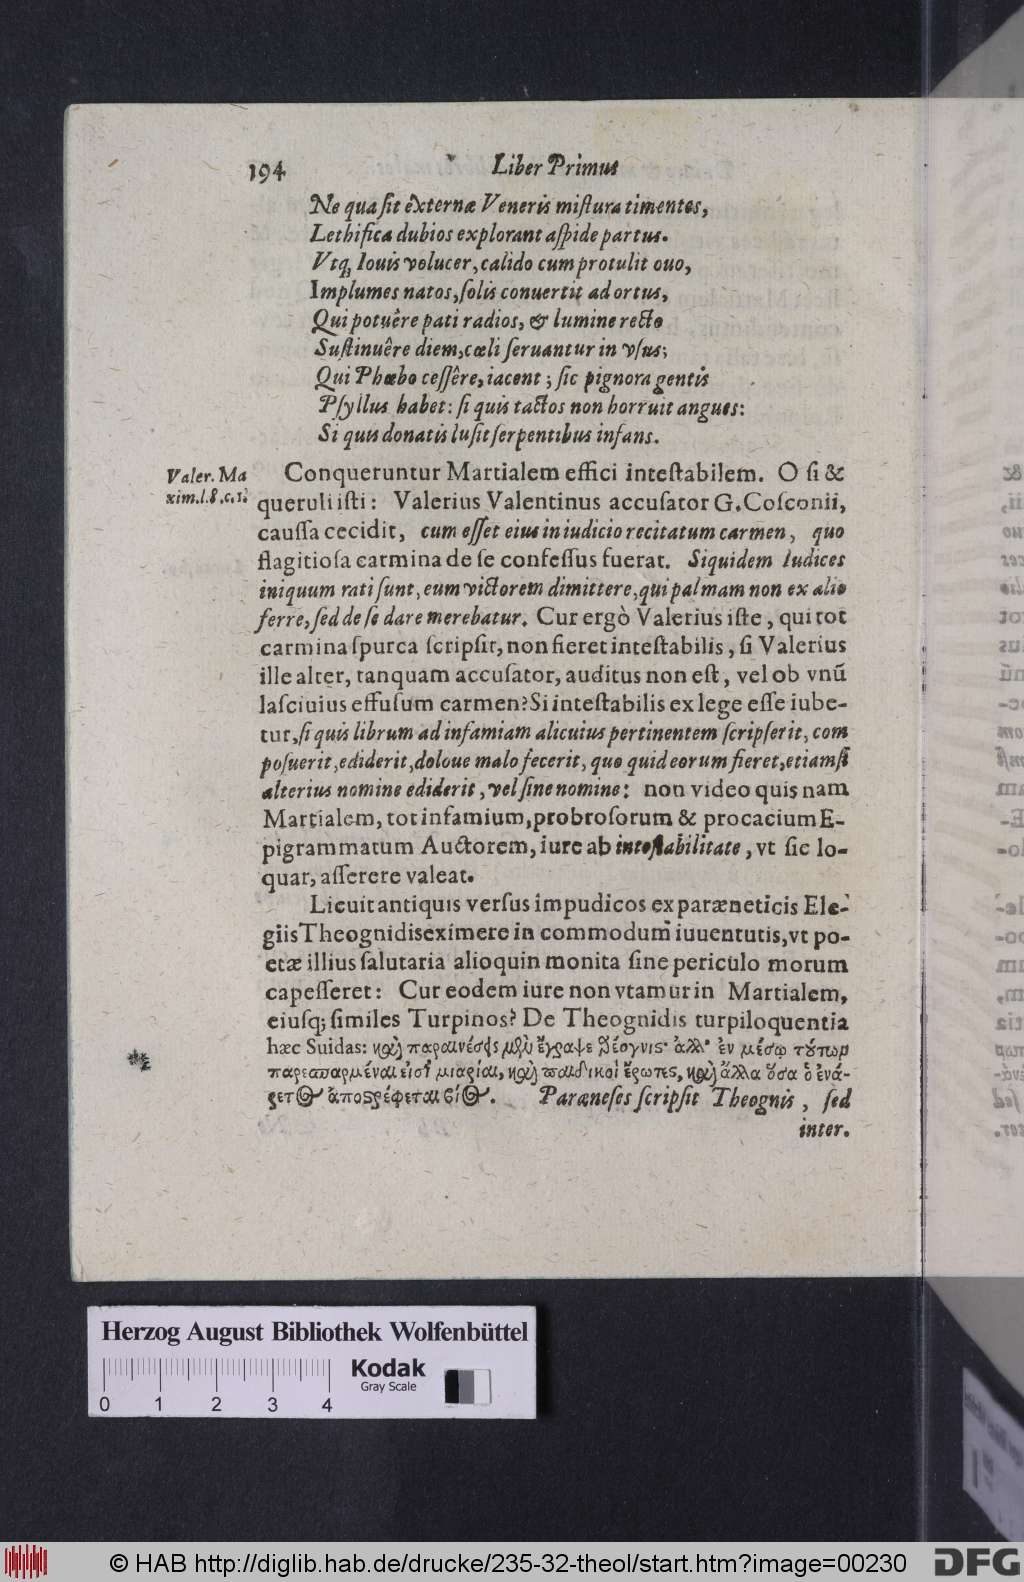 194 Liber Primus
Ne qua sit externæ Veneris mistura timentes,
Lethifica dubios explorant aspide partus.
Vtq; Iouis volucer, calido cum protulit ouo,
Implumes natos, solis conuertit ad ortus,
Qui potuêre pati radios, & lumine recto
Sustinuêre diem, cœli seruantur in vsus;
Qui Phœbo cessêre, iacent; sic pignora gentis
Psyllus habet: si quis tactos non horruit angues:
Si quis donatis lusit serpentibus infans.
Valer. Ma
xim. l. 8. c. 1.
Conqueruntur Martialem effici intestabilem. O si &
queruli isti: Valerius Valentinus accusator G. Cosconii,
caussa cecidit, cum esset eius in iudicio recitatum carmen, quo
flagitiosa carmina de se confessus fuerat. Siquidem Iudices
iniquum rati sunt, eum victorem dimittere, qui palmam non ex alio
ferre, sed de se dare merebatur. Cur ergò Valerius iste, qui tot
carmina spurca scripsit, non fieret intestabilis, si Valerius
ille alter, tanquam accusator, auditus non est, vel ob vnũ
lasciuius effusum carmen? Si intestabilis ex lege esse iube-
tur, si quis librum ad infamiam alicuius pertinentem scripserit, com
posuerit, ediderit, doloue malo fecerit, quo quid eorum fieret, etiamsi
alterius nomine ediderit, vel sine nomine: non video quis nam
Martialem, tot infamium, probrosorum & procacium E-
pigrammatum Auctorem, iure ab intestabilitate, vt sic lo-
quar, asserere valeat.
Licuit antiquis versus impudicos ex paræneticis Ele-
giis Theognidis eximere in commodum iuuentutis, vt po-
etæ illius salutaria alioquin monita sine periculo morum
capesseret: Cur eodem iure non vtamur in Martialem,
eiusq; similes Turpinos? De Theognidis turpiloquentia
hæc Suidas: καὶ παραινέσεις μὲν ἔγραψε Θέογνις· ἀλλ' ἐν μέσῳ τούτων
παρεσπαρμέναι εἰσὶ μιαρίαι, καὶ παιδικοὶ ἔρωτες, καὶ ἄλλα ὅσα ὁ ἐνά-
ρετος ἀποστρέφεται βίος. Paræneses scripsit Theognis, sed
inter.
Herzog August Bibliothek Wolfenbüttel
Kodak
Gray Scale
0 1 2 3 4
© HAB http://diglib.hab.de/drucke/235-32-theol/start.htm?image=00230
DFG